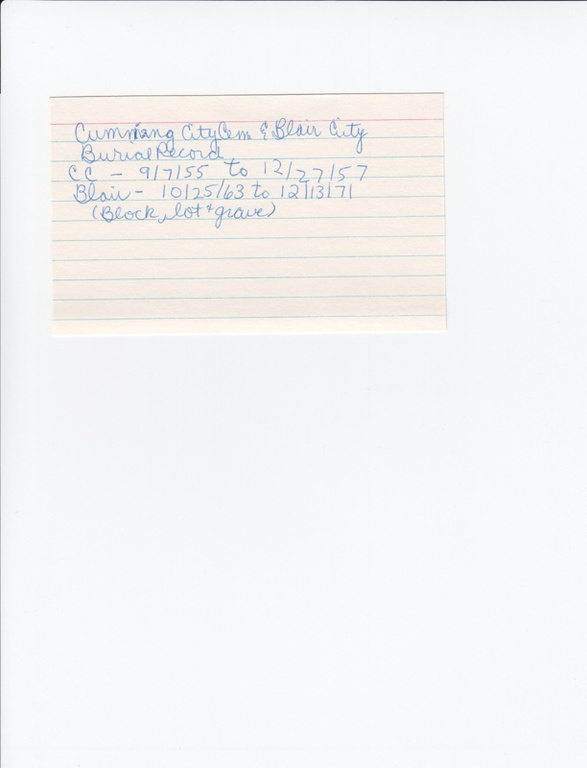 Cumming City Cem & Blair City
Burial Record
CC - 9/7/55 to 12/27/57
Blair - 10/25/63 to 12/13/71
(Block, lot & grave)